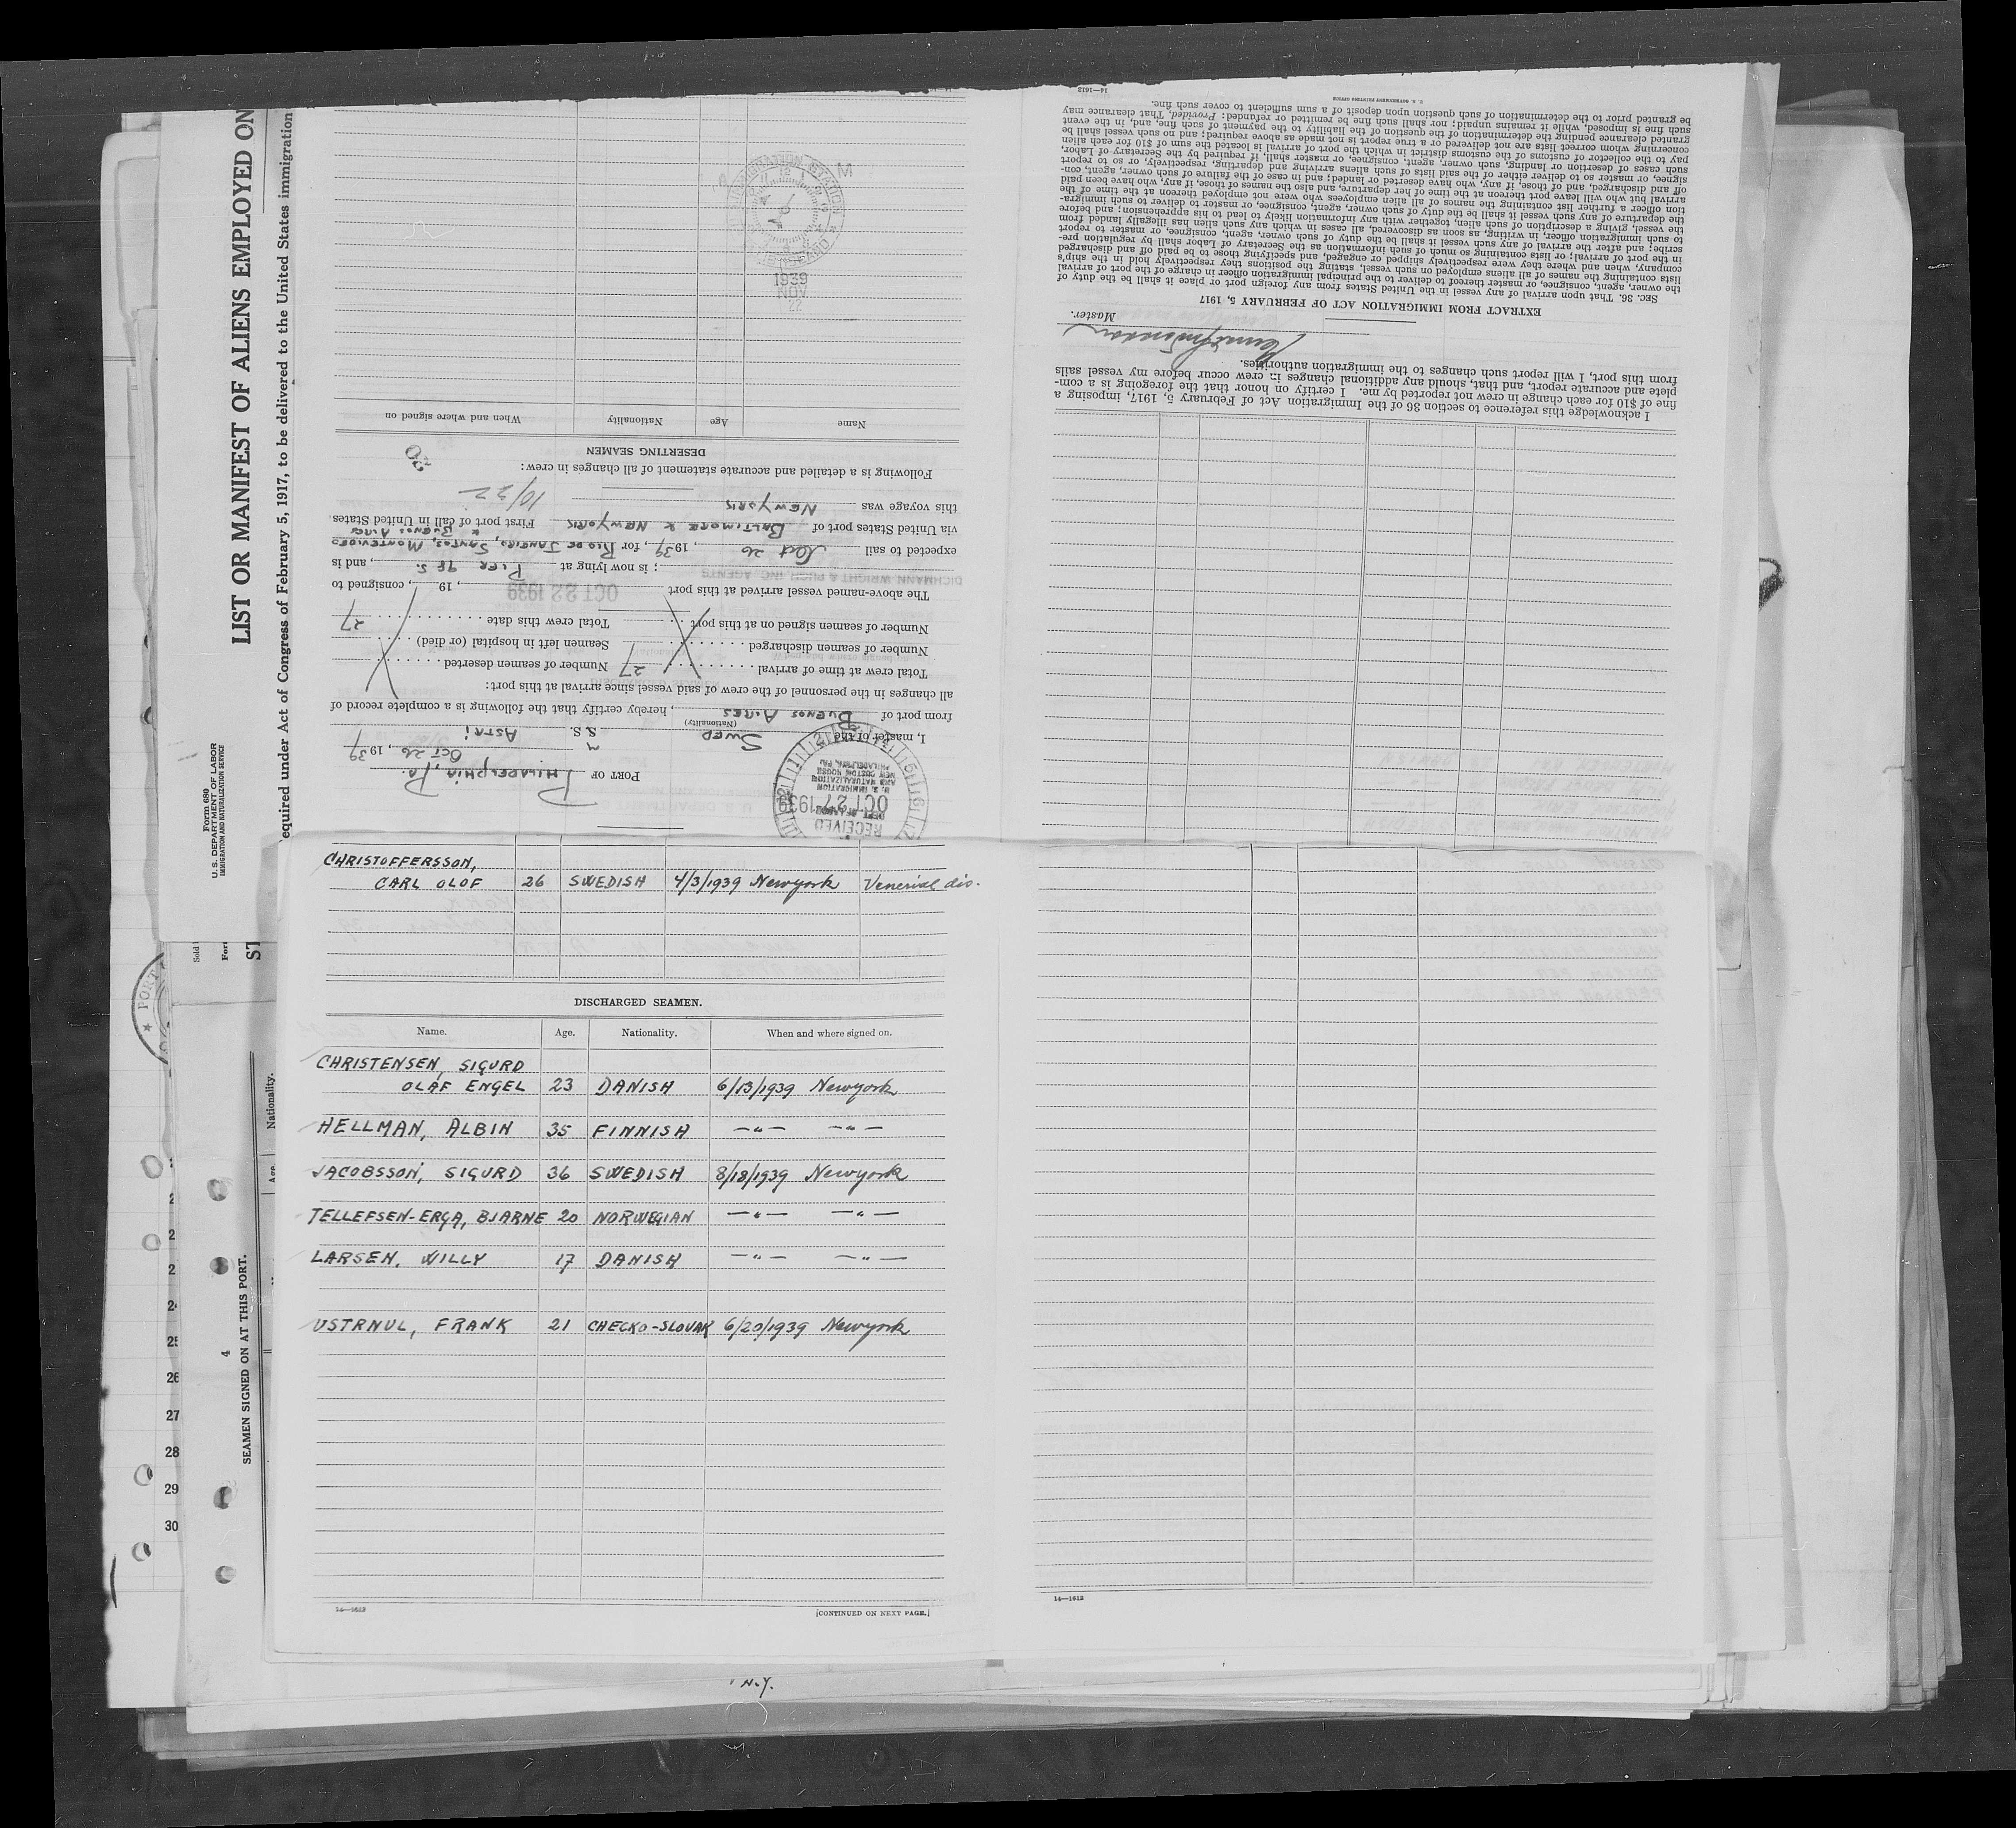 LIST OR MANIFEST OF ALIENS EMPLOYED ON
equired under Act of Congress of February 5, 1917, to be delivered to the United States immigration
Form 680
U. S. DEPARTMENT OF LABOR
IMMIGRATION AND NATURALIZATION SERVICE
RECEIVED
OCT 27 1939
U. S. IMMIGRATION
AND NATURALIZATION
NEW CUSTOM HOUSE
PHILADELPHIA, PA.
PORT OF PHILADELPHIA, Pa.
OCT 26, 1939
I, master of the SWED M S. S. ASTRI
(Nationality)
from port of BUENOS AIRES, hereby certify that the following is a complete record of
all changes in the personnel of the crew of said vessel since arrival at this port:
Total crew at time of arrival 27 Number of seamen deserted
Number of seamen discharged Seamen left in hospital (or died)
Number of seamen signed on at this port Total crew this date 27
The above-named vessel arrived at this port OCT 22 1939, 19, consigned to
DICHMANN WRIGHT & PUGH, INC. AGENTS; is now lying at PIER 98 S., and is
expected to sail Oct 26, 1939, for RIO DE JANEIRO, SANTOS, MONTEVIDEO
& BUENOS AIRES
via United States port of BALTIMORE & NEWYORK First port of call in United States
this voyage was NEWYORK 10/22
Following is a detailed and accurate statement of all changes in crew:
DESERTING SEAMEN
Name Age Nationality When and where signed on
IMMIGRATION STATION
1939
NOV
22
M
I acknowledge this reference to section 36 of the Immigration Act of February 5, 1917, imposing a
fine of $10 for each change in crew not reported by me. I certify on honor that the foregoing is a com-
plete and accurate report, and that, should any additional changes in crew occur before my vessel sails
from this port, I will report such changes to the immigration authorities.
Master.
EXTRACT FROM IMMIGRATION ACT OF FEBRUARY 5, 1917
SEC. 36. That upon arrival of any vessel in the United States from any foreign port or place it shall be the duty of
the owner, agent, consignee, or master thereof to deliver to the principal immigration officer in charge of the port of arrival
lists containing the names of all aliens employed on such vessel, stating the positions they respectively hold in the ship's
company, when and where they were respectively shipped or engaged, and specifying those to be paid off and discharged
in the port of arrival; or lists containing so much of such information as the Secretary of Labor shall by regulation pre-
scribe; and after the arrival of any such vessel it shall be the duty of such owner, agent, consignee, or master to report
to such immigration officer, in writing, as soon as discovered, all cases in which any such alien has illegally landed from
the vessel, giving a description of such alien, together with any information likely to lead to his apprehension; and before
the departure of any such vessel it shall be the duty of such owner, agent, consignee, or master to deliver to such immigra-
tion officer a further list containing the names of all alien employees who were not employed thereon at the time of the
arrival but who will leave port thereon at the time of her departure, and also the names of those, if any, who have been paid
off and discharged, and of those, if any, who have deserted or landed; and in case of the failure of such owner, agent, con-
signee, or master so to deliver either of the said lists of such aliens arriving and departing, respectively, or so to report
such cases of desertion or landing, such owner, agent, consignee, or master shall, if required by the Secretary of Labor,
pay to the collector of customs of the customs district in which the port of arrival is located the sum of $10 for each alien
concerning whom correct lists are not delivered or a true report is not made as above required; and no such vessel shall be
granted clearance pending the determination of the question of the liability to the payment of such fine, and, in the event
such fine is imposed, while it remains unpaid; nor shall such fine be remitted or refunded: Provided, That clearance may
be granted prior to the determination of such question upon deposit of a sum sufficient to cover such fine.
U. S. GOVERNMENT PRINTING OFFICE
14—1613
CHRISTOFFERSSON,
CARL OLOF 26 SWEDISH 4/3/1939 Newyork Venerial dis.
DISCHARGED SEAMEN.
Name. Age. Nationality. When and where signed on.
CHRISTENSEN, SIGURD
OLAF ENGEL 23 DANISH 6/13/1939 Newyork
HELLMAN, ALBIN 35 FINNISH —"— —"—
JACOBSSON, SIGURD 36 SWEDISH 8/18/1939 Newyork
TELLEFSEN-ERGA, BJARNE 20 NORWEGIAN —"— —"—
LARSEN, WILLY 17 DANISH —"— —"—
USTRNUL, FRANK 21 CHECKO-SLOVAK 6/20/1939 Newyork
14—1613
[CONTINUED ON NEXT PAGE.]
14—1613
4
SEAMEN SIGNED ON AT THIS PORT.
Nationality.
Age
PORT
25
26
27
28
29
30
N.Y.